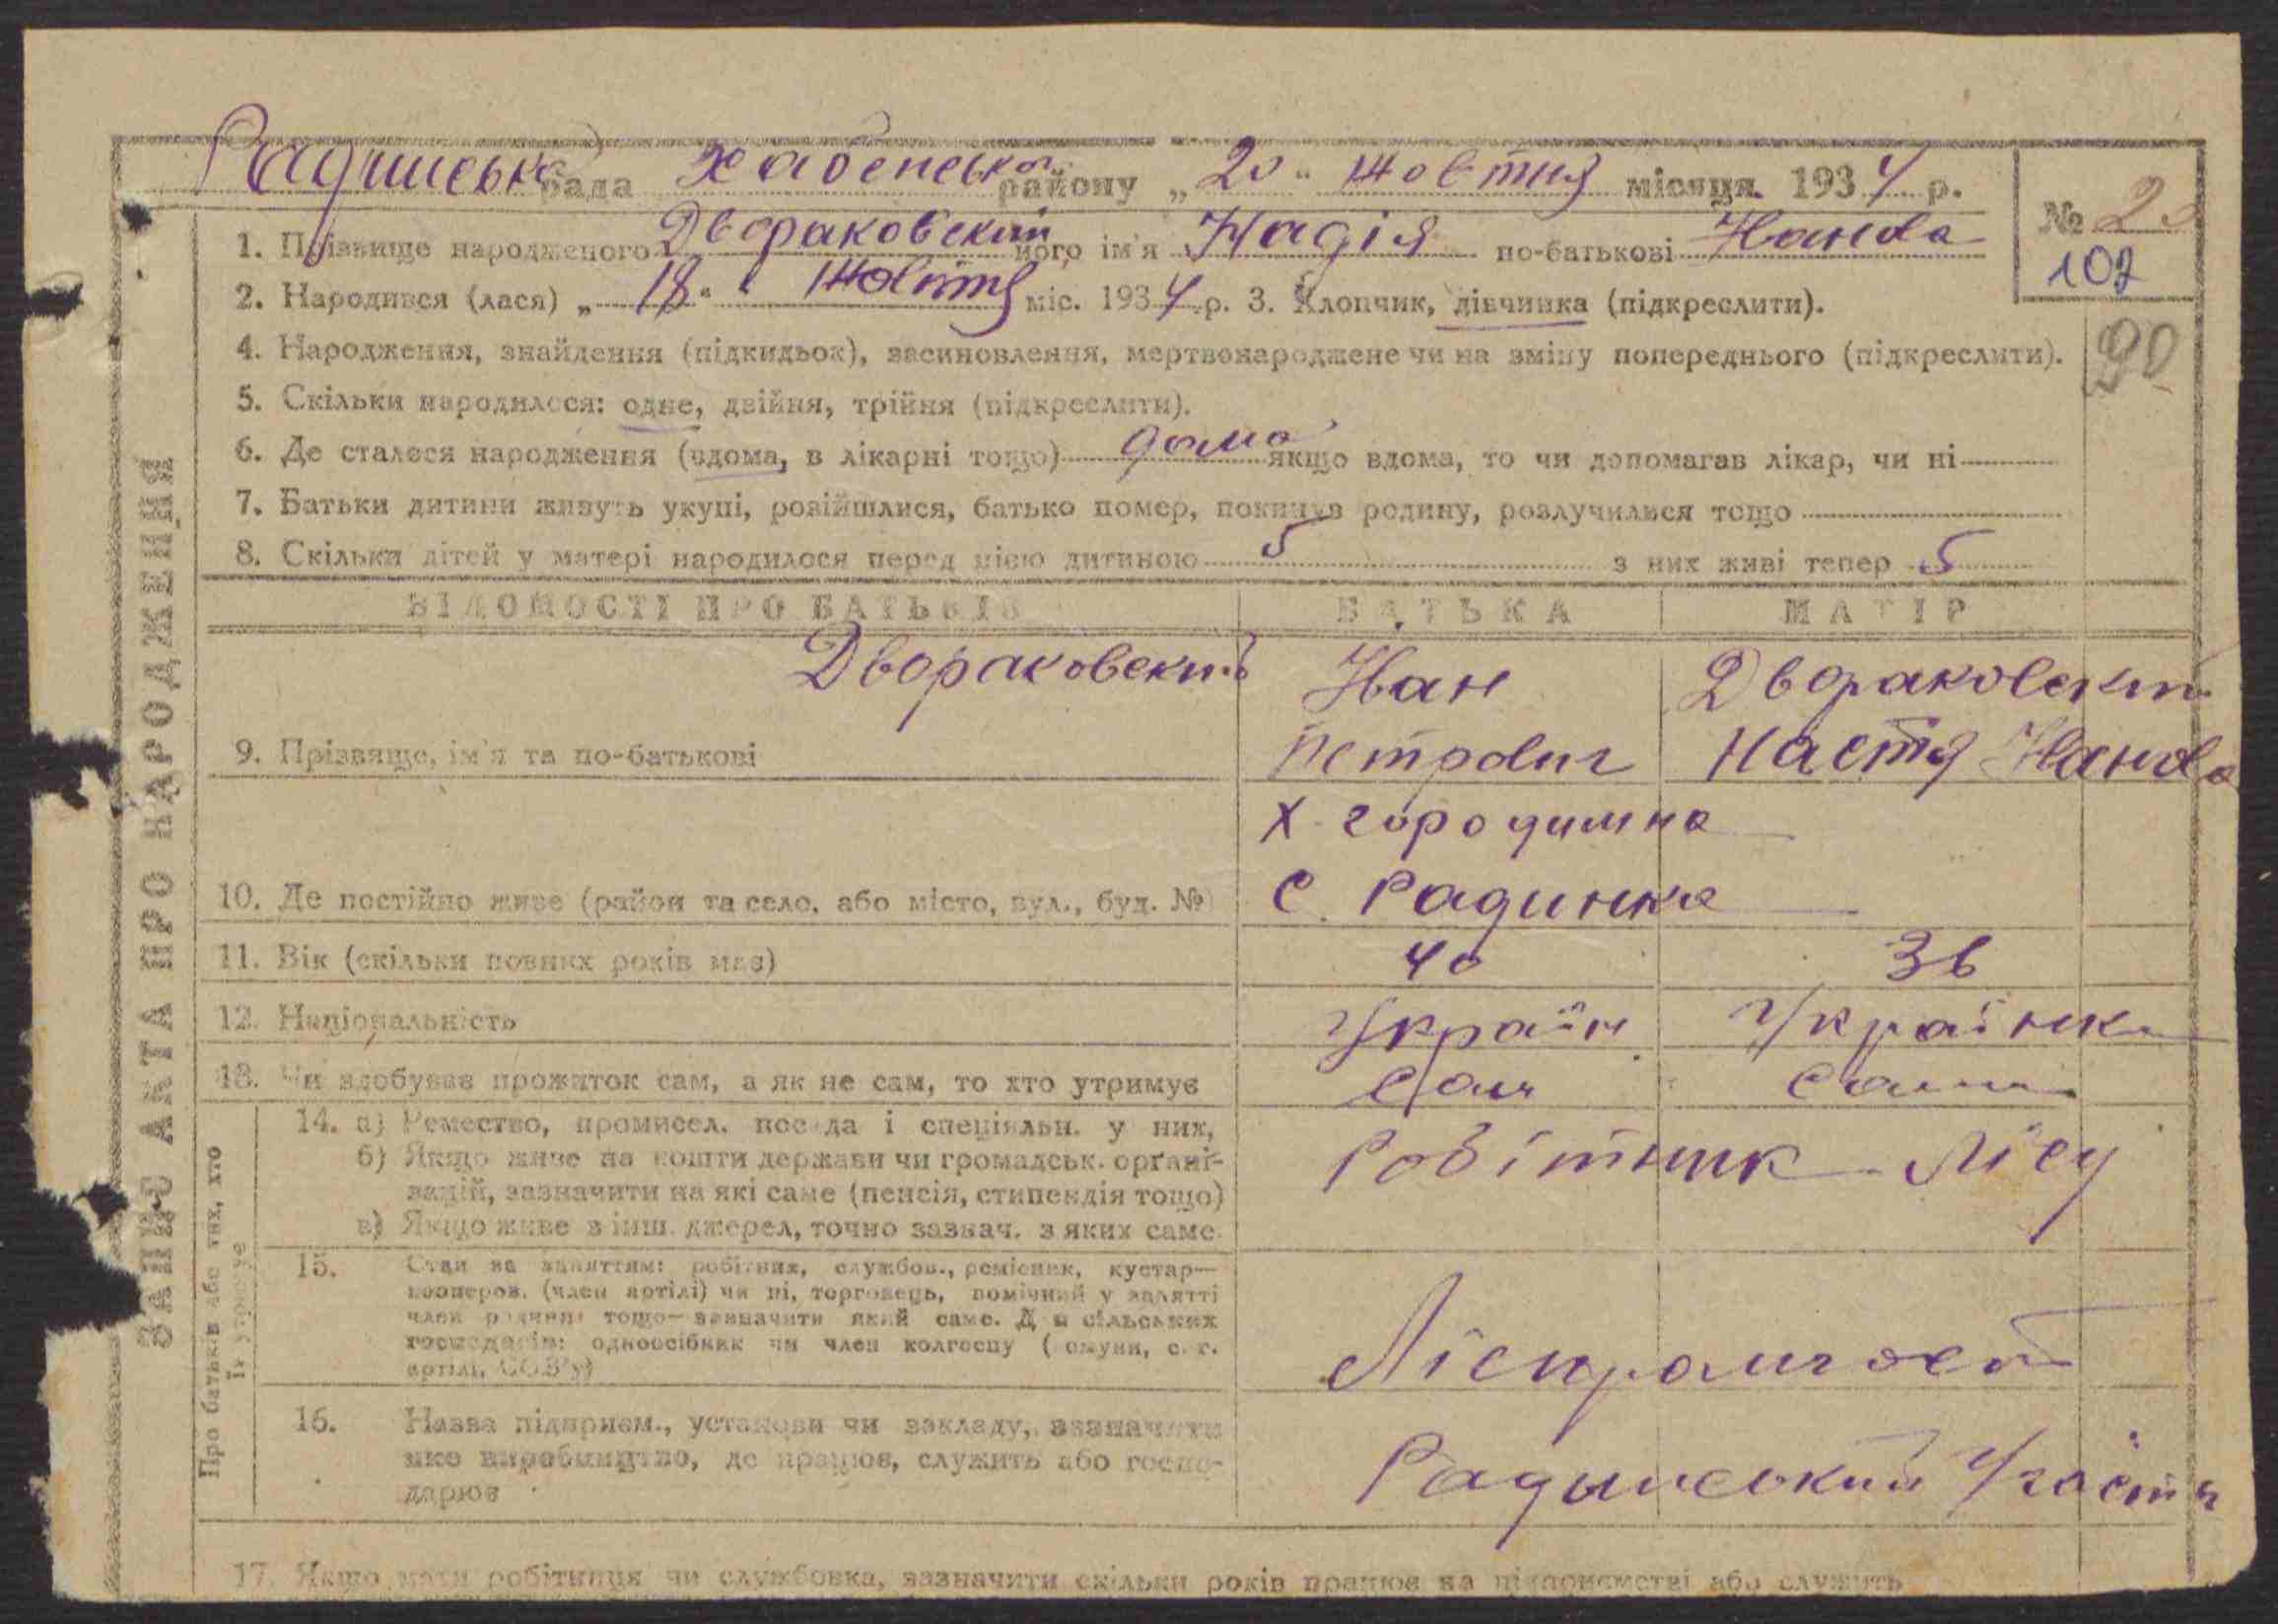 Радинська рада Хабенського району „20“ Жовтня місяця 1934 р.
№ 20
107
1. Прізвище народженого Двораковский його ім'я Надія по-батькові Іванова
2. Народився (лася) „18“ Жовтня міс. 1934 р. 3. Хлопчик, дівчинка (підкреслити).
90
4. Народження, знайдення (підкидьок), засиновлення, мертвонароджене чи на зміну попереднього (підкреслити).
5. Скільки народилося: одне, двійня, трійня (підкреслити).
6. Де сталося народження (вдома, в лікарні тощо) дома якщо вдома, то чи допомагав лікар, чи ні
7. Батьки дитини живуть укупі, розійшлися, батько помер, покинув родину, розлучилися тощо
8. Скільки дітей у матері народилося перед цією дитиною 5 з них живі тепер 5
ВІДОМОСТІ ПРО БАТЬКІВ БАТЬКА МАТІР
Двораковский Іван Двораковский
9. Прізвище, ім'я та по-батькові Петрович Настя Іванова
Х. городчина
10. Де постійно живе (район та село, або місто, вул., буд. №) с. Радинка
11. Вік (скільки повних років має) 40 36
12. Національність Україн Українка
13. Чи здобуває прожиток сам, а як не сам, то хто утримує сам сама
14. а) Ремество, промисел, посада і спеціяльн. у них,
б) Якщо живе на кошти держави чи громадськ. органі-
зацій, зазначити на які саме (пенсія, стипендія тощо)
в) Якщо живе з інш. джерел, точно зазнач. з яких саме
Робітник Лісу
15. Стан за заняттям: робітник, службов., ремісник, кустар—
кооперов. (член артілі) чи ні, торговець, помічний у занятті
член родини тощо—зазначити який саме. Для сільських
господарів: одноосібник чи член колгоспу (комуни, с.-г.
артілі, СОЗ'у)
Ліспромгосп
16. Назва підприєм., установи чи закладу, зазначити
яке виробництво, де працює, служить або госпо-
дарює
Радинський
17. Якщо мати робітниця чи службовка, зазначити скільки років працює на підприємстві або служить
ЗАПИС АКТА ПРО НАРОДЖЕННЯ
Про батьків або тих, хто
їх утримує